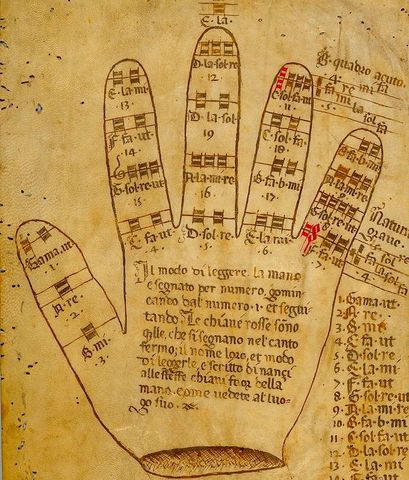 E. la.
B. quadro acuto.
D. la. sol. re
12
E. la. mi
13
C. sol. fa. ut
11
D. la. sol
19
F. fa. ut
14
C. sol. fa
18
B. fa. b. mi
A. la. mi. re
16
G. sol. re. ut
15
B. fa. b. mi
17
A. la. mi. re
9
G. sol. re. ut
8
Natura
grave.
C. fa. ut
4.
D. sol. re
5.
F. fa. ut
7.
Gama. ut
.1.
A. re
.2.
B. mi
.3.
Il modo di leggere la mano
e segnato per numero, comin
cando dal numero .1. et segui
tando. Le chiave rosse sono
q̃lle, che si segnano nel canto
fermo; il nome loro, et modo
di leggerle, e scritto di nanci
alle stesse chiavi fuor della
mano come vedete al luo
go suo.
1. Gama. ut
2. A. re
3. B. mi
4. C. fa. ut
5. D. sol. re
6. E. la. mi
7. F. fa. ut
8. G. sol. re. ut
9. A. la. mi. re
10. B. fa. b. mi
11. C. sol. fa. ut
12. D. la. sol. re
13. E. la. mi